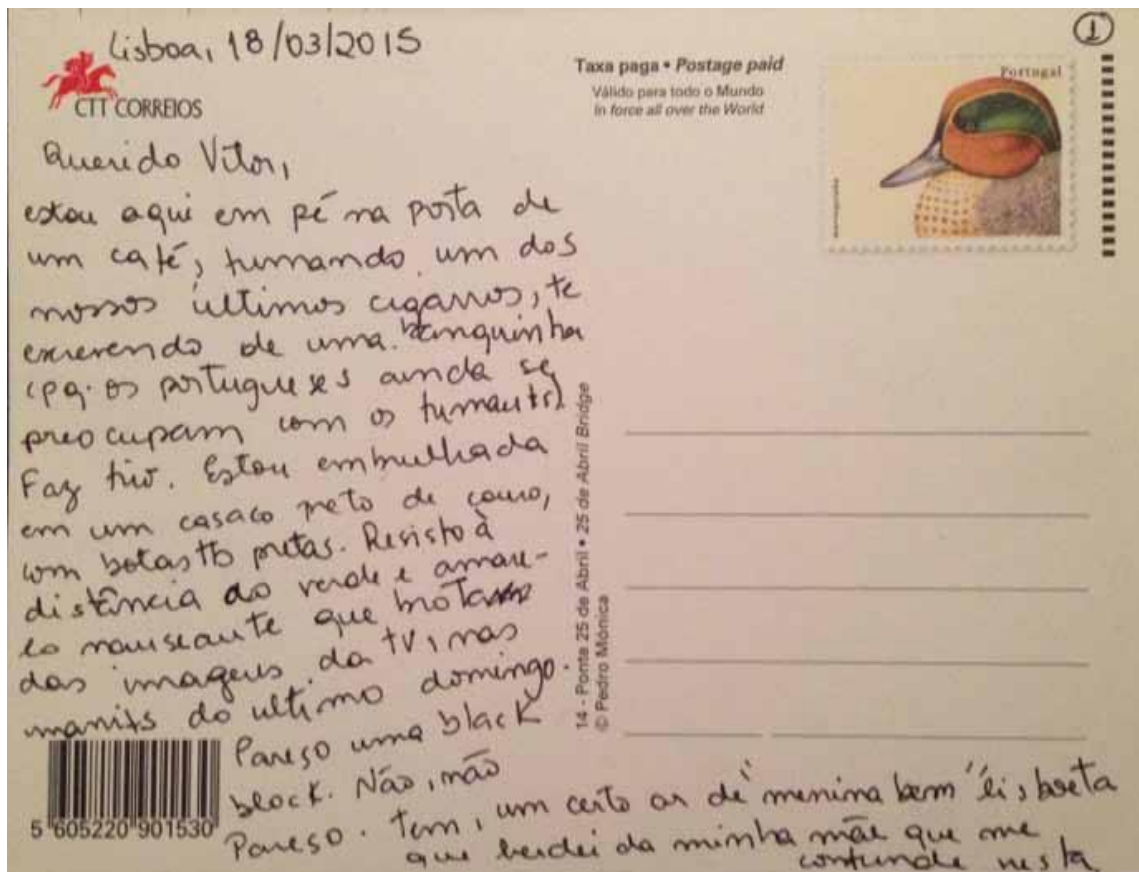 Lisboa, 18/03/2015
CTT CORREIOS
Taxa paga • Postage paid
Válido para todo o Mundo
In force all over the World
Portugal
1
Querido Vitor,
estou aqui em pé na porta de
um café, fumando um dos
nossos últimos cigarros, te
escrevendo de uma banquinha
(pq. os portugueses ainda se
preocupam com os fumantes)
Faz frio. Estou embrulhada
em um casaco preto de couro,
com botas tb pretas. Resisto à
distância ao verde e amare-
lo nauseante que brotam
das imagens da TV, nas
manifs do ultimo domingo.
Pareço uma black
block. Não, não
pareço. Tem, um certo ar de "menina bem" lisboeta
que herdei da minha mãe que me
confunde nesta
14 - Ponte 25 de Abril • 25 de Abril Bridge
© Pedro Mónica
5 605220 901530